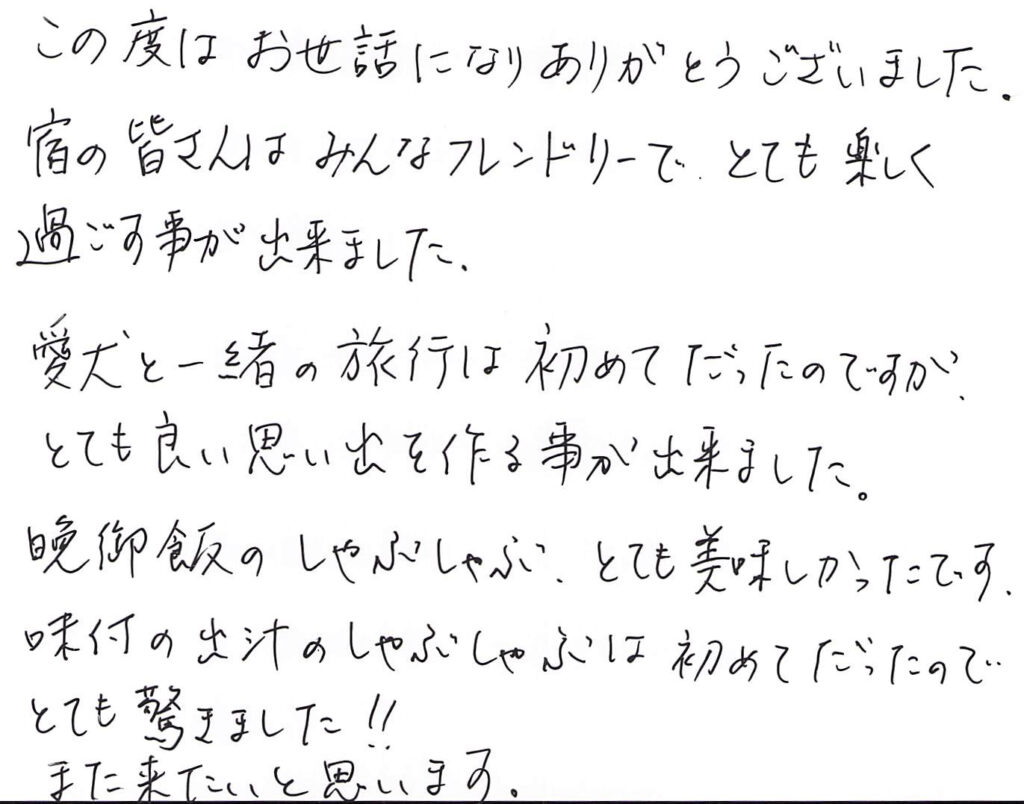 この度は お世話になり ありがとうございました.
宿の皆さんは みんなフレンドリーで. とても楽しく
過ごす事が出来ました.
愛犬と一緒の旅行は 初めてだったのですが、
とても良い思い出を作る事が出来ました。
晩御飯のしゃぶしゃぶ、とても美味しかったです.
味付の出汁のしゃぶしゃぶは 初めてだったので
とても驚きました!!
また来たいと思います.